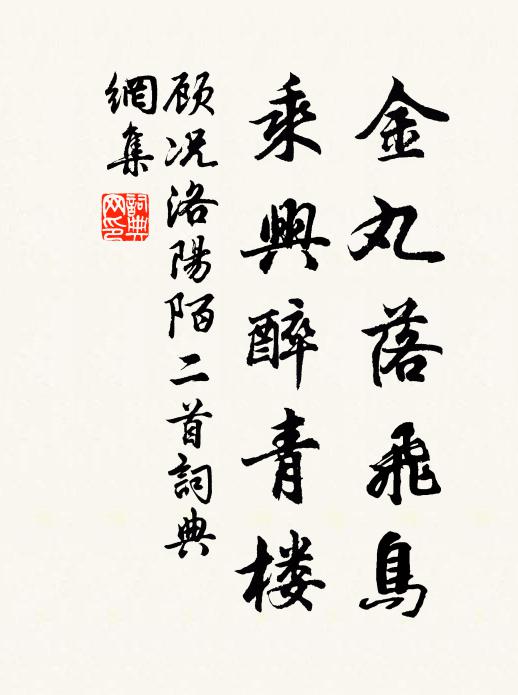 金丸落飛鳥
乘興醉青楼
顾况洛陽陌二首詞典
網集
詞典网印